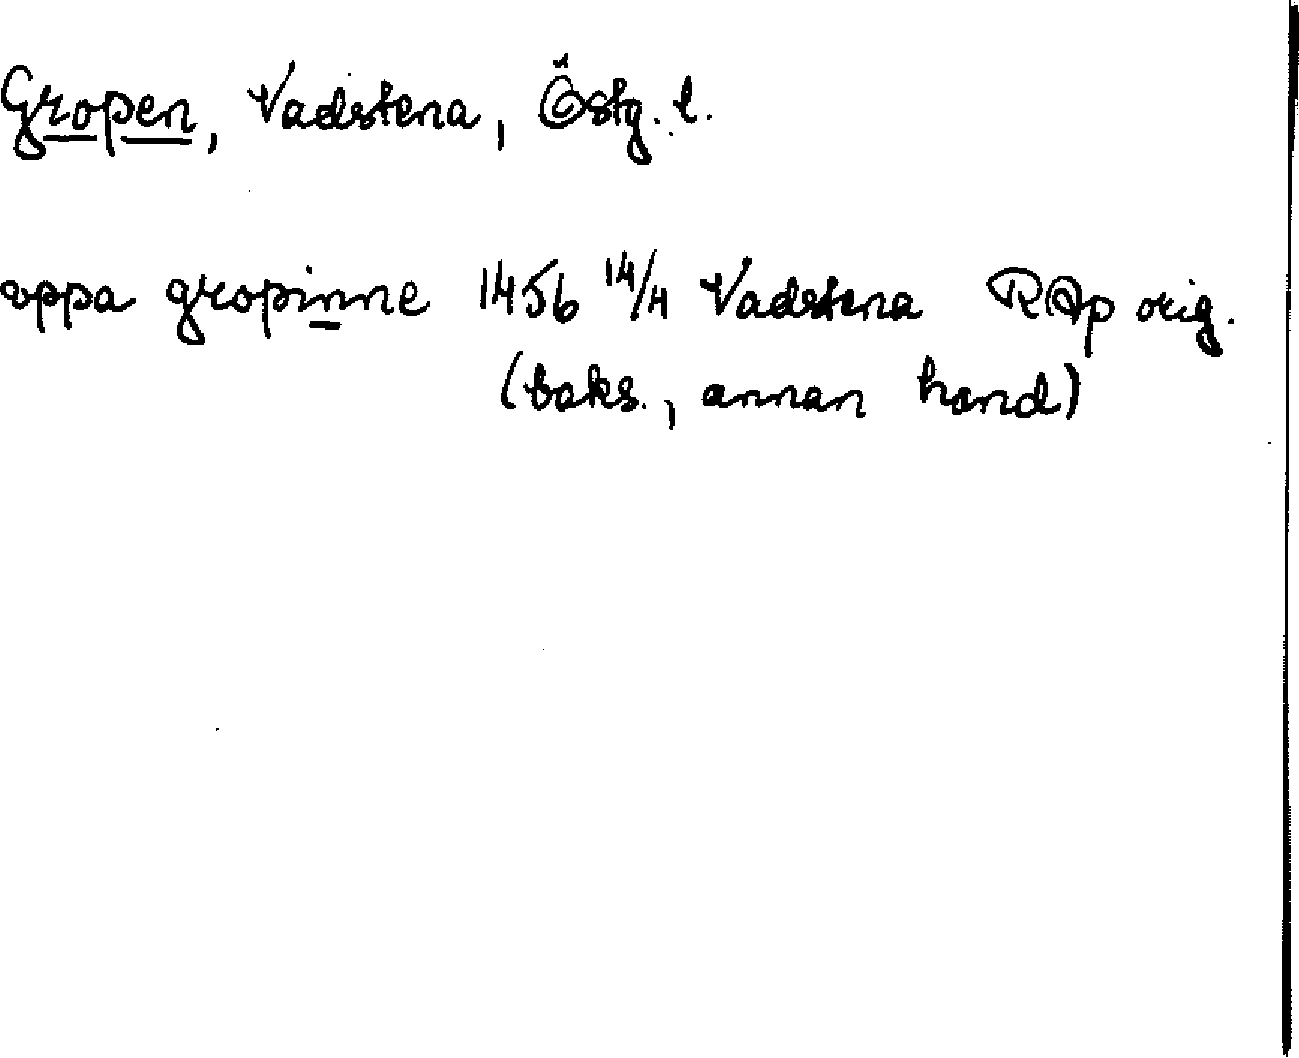 Gropen, Vadstena, Östg. l.
oppa gropinne 1456 14/4 Vadstena RAp orig.
(baks., annan hand)